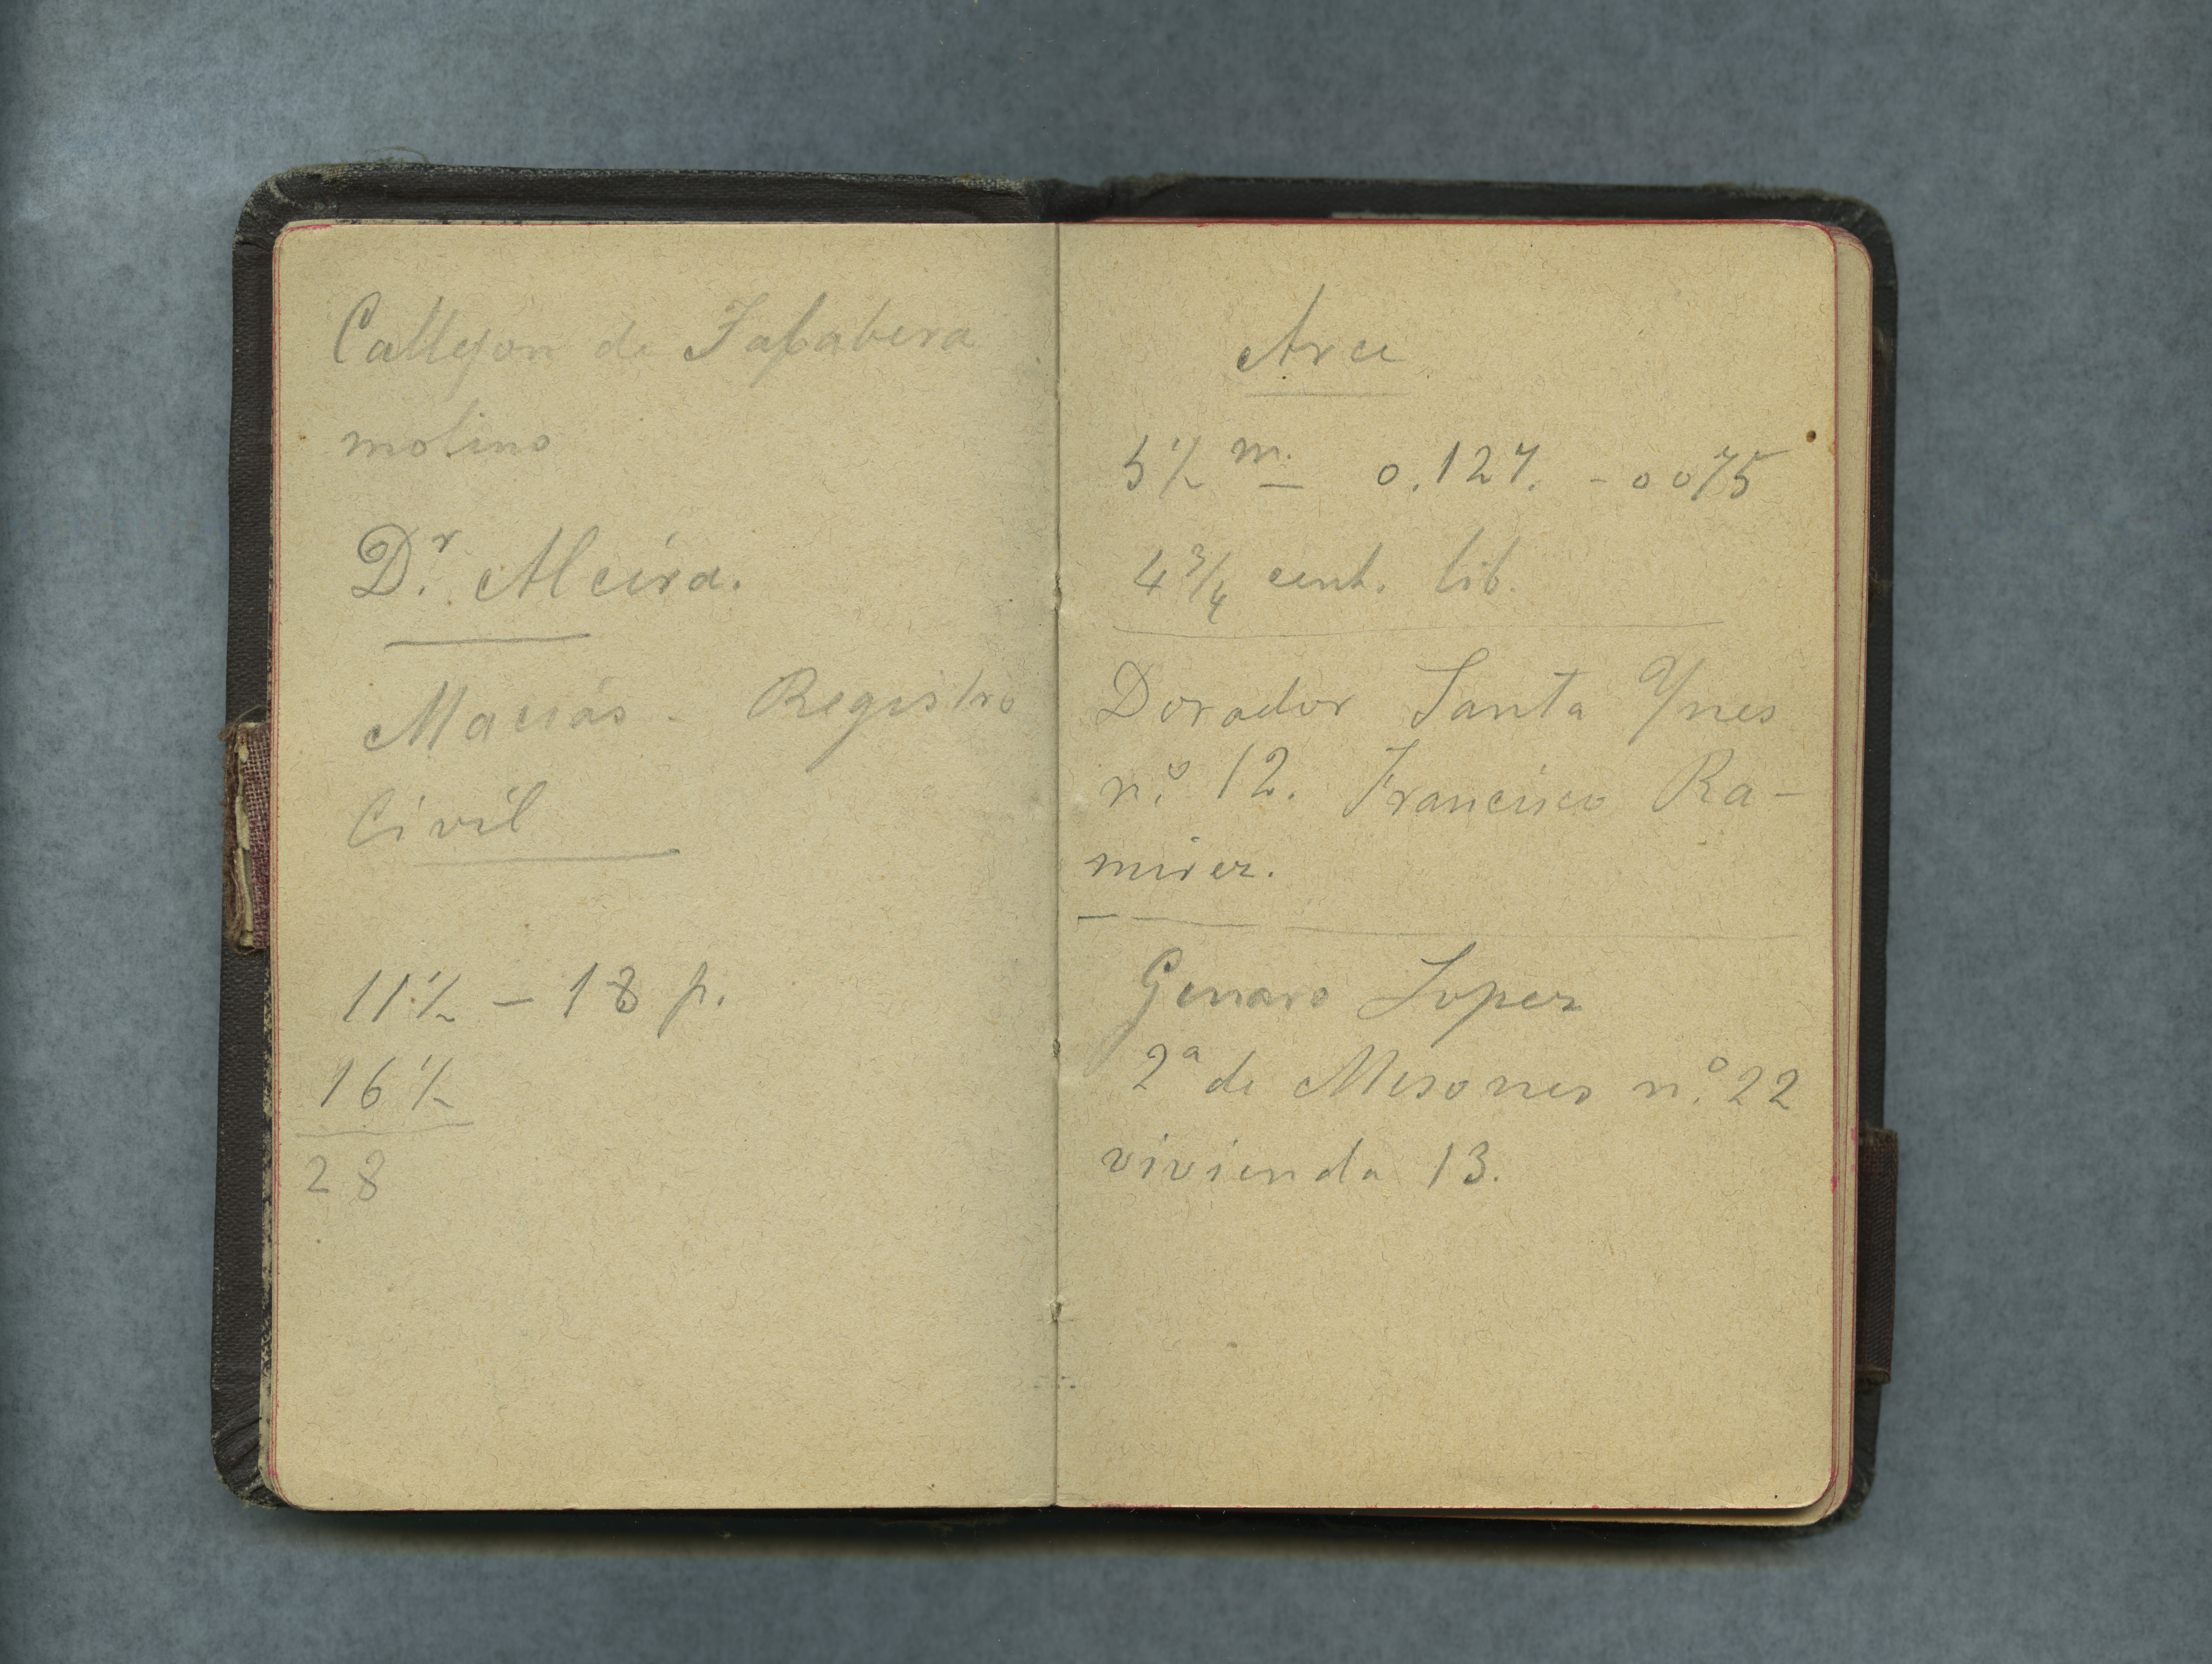 Callejon de Talabera
molino
Dr. Alcira.
Macías - Registro
Civil
11 ½ - 18 p.
16 ½
28
Arce
5 ½ m. 0.127. - 0075
4 ¾ cent. lib.
Dorador Santa Ynes
nº 12. Francisco Ra-
mirez.
Genaro Lopez
2ª de Mesones nº 22
vivienda 13.